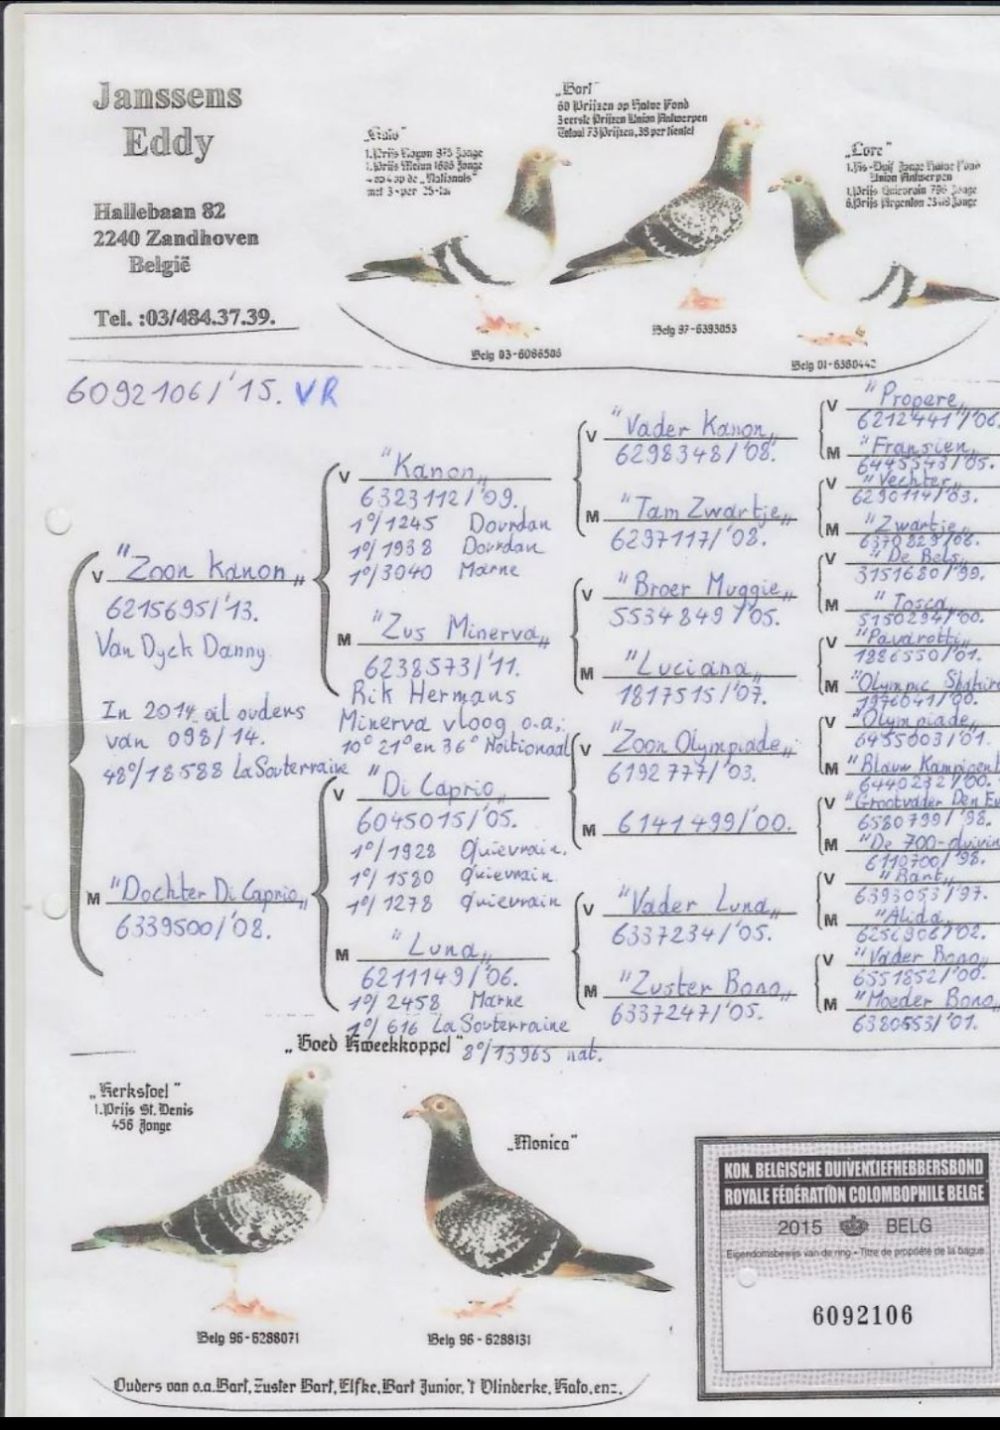 Janssens
Eddy
Hallebaan 82
2240 Zandhoven
België
Tel. :03/484.37.39.
1.Prijs Noyon 975 Jonge
1.Prijs Melun 1686 Jonge
met 3-per
Belg 03-6086505
„Bart"
60 Prijzen op Halve Fond
3 eerste Prijzen Union Antwerpen
Totaal 73 Prijzen,38 per tiental
Belg 97-6393053
„Lore"
1.As-Duif Jonge Halve Fond
Union Antwerpen
1.Prijs Quievrain 796 Jonge
6.Prijs Argenton Jonge
Belg 01-6380442
6092106/'15. VR
V "Zoon Kanon„
6215695/'13.
Van Dyck Danny
In 2014 al ouders
van 098/14.
48°/18588 La Souterraine
M "Dochter Di Caprio„
6339500/'08.
V "Kanon„
6323112/'09.
1°/1245 Dourdan
1°/1938 Dourdan
1°/3040 Marne
M "Zus Minerva„
6238573/'11.
Rik Hermans
Minerva vloog o.a,:
10° 21° en 36° Nationaal
V "Di Caprio„
6045015/'05.
1°/1928 Quievrain.
1°/1580 Quievrain
1°/1278 Quievrain
M "Luna„
6211149/'06.
1°/2458 Marne
1°/616 La Souterraine
8°/13965 nat.
V "Vader Kanon„
6298348/'08.
M "Tam Zwartje„
6297117/'08.
V "Broer Muggie„
5534849/'05.
M "Luciana„
1817515/'07.
V "Zoon Olympiade„
6192777/'03.
M 6141499/'00.
V "Vader Luna„
6337234/'05.
M "Zuster Bono„
6337247/'05.
V "Propere„
6212441/'06.
M "Fransien„
6445343/'05.
V "Vechter„
6290114/'03.
M "Zwartje„
6370829/'06.
V "De Bels„
3151680/'99.
M "Tosca„
5150294/'00.
V "Pavarotti„
1886550/'01.
M "Olympic
1976041/'00.
V "Olympiade„
6455003/'01.
M "Blauw
6440232/'00.
V "Grootvader Den
6580799/'98.
M "De 700-duivin
6110700/'98.
V "Bart„
6393053/'97.
M "Alida„
6256906/'02.
V "Vader Bono„
6551852/'00.
M "Moeder Bono„
6380553/'01.
„Goed Kweekkoppel"
„Kerkstoel"
1.Prijs St. Denis
456 Jonge
Belg 96-6288071
„Monica"
Belg 96 - 6288131
Ouders van o.a.Bart,Zuster Bart,Elfke,Bart Junior,'t Vlinderke,Kato,enz.
KON. BELGISCHE DUIVENLIEFHEBBERSBOND
ROYALE FÉDÉRATION COLOMBOPHILE BELGE
2015 BELG
Eigendomsbewijs van de ring - Titre de propriété de la bague
6092106